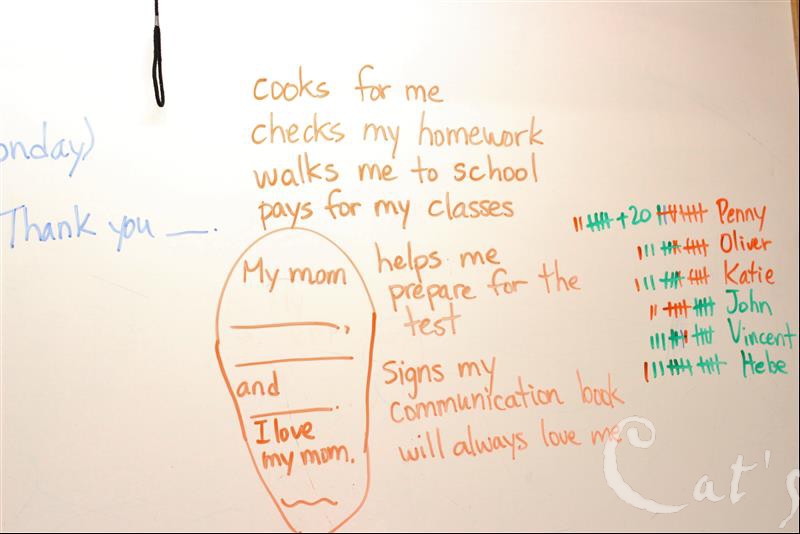 onday)
Thank you __.
cooks for me
checks my homework
walks me to school
pays for my classes
helps me
prepare for the
test
Signs my
communication book
will always love me
My mom
________,
________
and
________.
I love
my mom.
+20 Penny
Oliver
Katie
John
Vincent
Hebe
Cat's